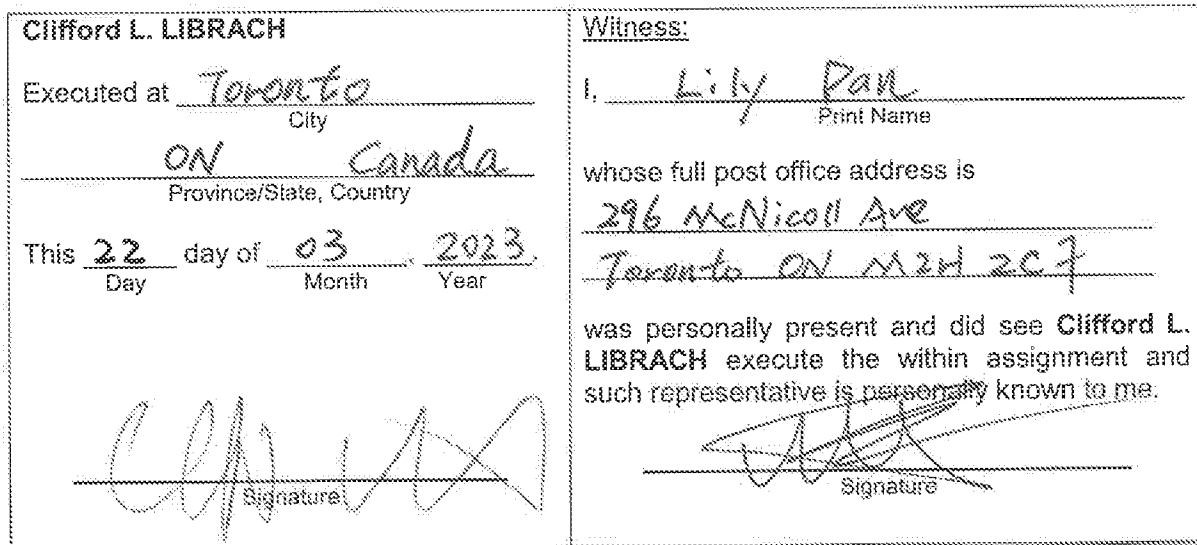 Clifford L. LIBRACH
Executed at Toronto
City
ON Canada
Province/State, Country
This 22 day of 03, 2023.
Day Month Year
Signature
Witness:
I, Lily Pan
Print Name
whose full post office address is
296 McNicoll Ave
Toronto ON M2H 2C7
was personally present and did see Clifford L.
LIBRACH execute the within assignment and
such representative is personally known to me.
Signature